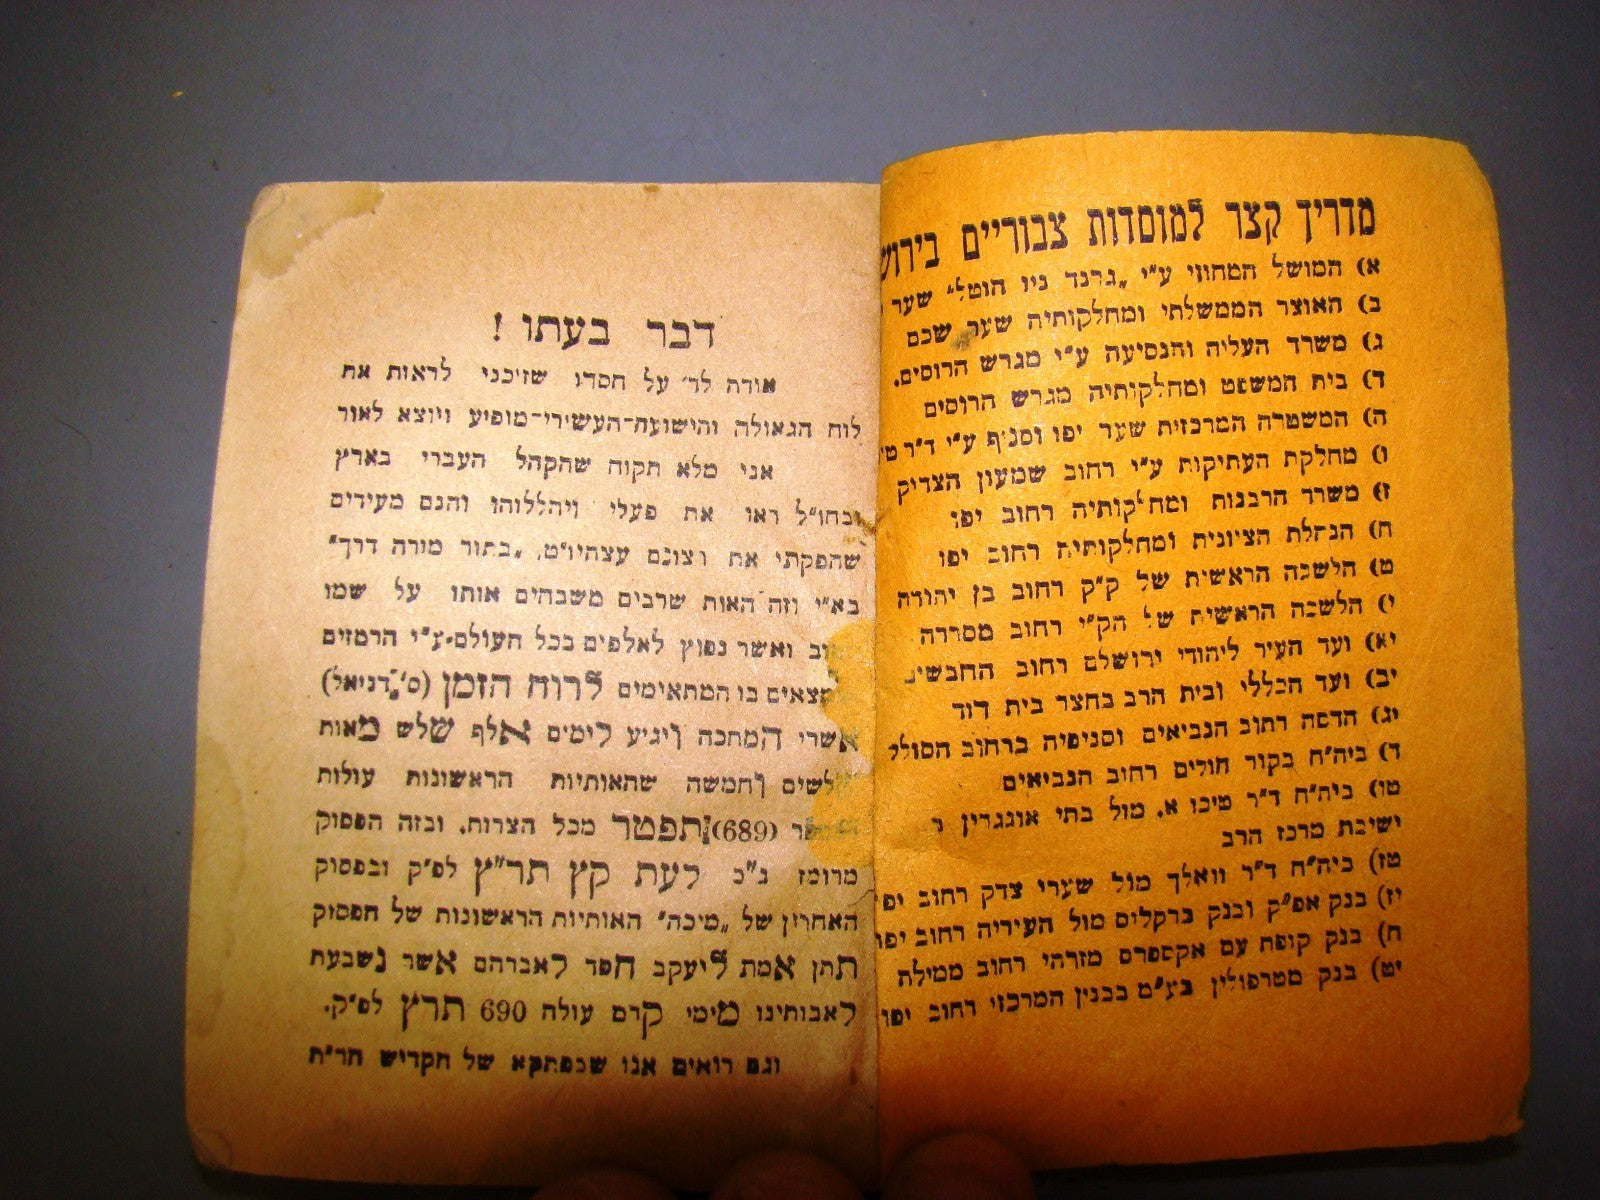 מדריך קצר למוסדות צבוריים
א) המושל המחוזי ע״י „גרנד ניו הוטל״ שער
ב) האוצר הממשלתי ומחלקותיה שער שכם
ג) משרד העליה והנסיעה ע״י מגרש הרוסים.
ד) בית המשפט ומחלקותיה מגרש הרוסים
ה) המשטרה המרכזית שער יפו וסניף ע״י ד״ר
ו) מחלקת העתיקות ע״י רחוב שמעון הצדיק
ז) משרד הרבנות ומחלקותיה רחוב יפו
ח) הנהלת הציונית ומחלקותיה רחוב יפו
ט) הלשכה הראשית של ק״ק רחוב בן יהודה
י) הלשכה הראשית של הק״י רחוב מסררה
יא) ועד העיר ליהודי ירושלם רחוב החבשים
יב) ועד הכללי ובית הרב בחצר בית דוד
יג) הדסה רחוב הנביאים וסניפיה ברחוב הסולל
ד) ביה״ח בקור חולים רחוב הנביאים
טו) ביה״ח ד״ר טיכו א. מול בתי אונגרין
ישיבת מרכז הרב
טז) ביה״ח ד״ר וואלך מול שערי צדק רחוב
יז) בנק אפ״ק ובנק ברקלים מול העיריה רחוב יפו
ח) בנק קופת עם אקספרס מזרהי רחוב ממילה
יט) בנק מטרפולין בע״מ בבנין המרכזי רחוב יפו
דבר בעתו !
אודה לד׳ על חסדו שזיכני לראות את
לוח הגאולה והישועה־העשירי־מופיע ויוצא לאור
אני מלא תקוה שהקהל העברי בארץ
ובחו״ל ראו את פעלי ויהללוהו והנם מעידים
שהפקתי את רצונם עצהיו״ט, „בתור מורה דרך״
בא״י וזה האות שרבים משבחים אותו על שמו
ואשר נפוץ לאלפים בכל העולם־ע״י הרמזים
בו המתאימים לרוח הזמן (ס׳ דניאל)
אשרי המחכה ויגיע לימים אלף שלש מאות
שלשים וחמשה שהאותיות הראשונות עולות
(689) תפטר מכל הצרות. ובזה הפסוק
מרומז ג״כ לעת קץ תר״ץ לפ״ק ובפסוק
האחרון של „מיכה״ האותיות הראשונות של הפסוק
תתן אמת ליעקב חסד לאברהם אשר נשבעת
לאבותינו מימי קדם עולה 690 תרץ לפ״ק.
וגם רואים אנו שבפתקא של הקדיש חר״ת